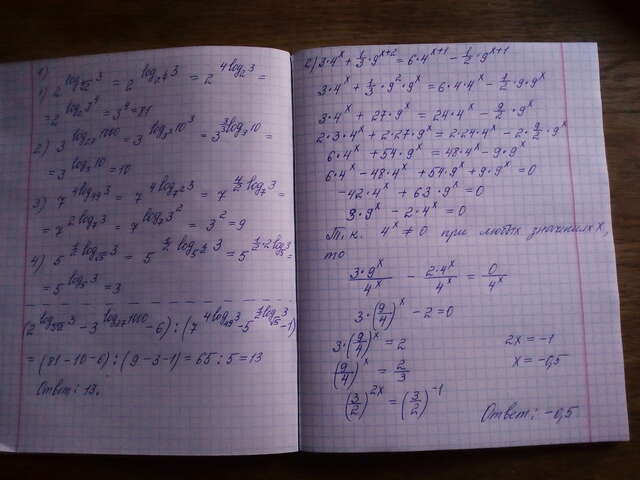 1)
1) 2^{log_{∜2} 3} = 2^{log_{2^{1/4}} 3} = 2^{4 log_2 3} =
= 2^{log_2 3^4} = 3^4 = 81
2) 3^{log_{27} 1000} = 3^{log_{3^3} 10^3} = 3^{3/3 log_3 10} =
= 3^{log_3 10} = 10
3) 7^{4 log_{49} 3} = 7^{4 log_{7^2} 3} = 7^{4/2 log_7 3} =
= 7^{2 log_7 3} = 7^{log_7 3^2} = 3^2 = 9
4) 5^{1/2 log_{√5} 3} = 5^{1/2 · log_{5^{1/2}} 3} = 5^{1/2 · 2 log_5 3} =
= 5^{log_5 3} = 3
(2^{log_{∜2} 3} - 3^{log_{27} 1000} - 6) : (7^{4 log_{49} 3} - 5^{1/2 log_{√5} 3} - 1)
= (81 - 10 - 6) : (9 - 3 - 1) = 65 : 5 = 13
Ответ: 13.
2) 3·4^x + 1/3·9^{x+2} = 6·4^{x+1} - 1/2·9^{x+1}
3·4^x + 1/3·9^2·9^x = 6·4·4^x - 1/2·9·9^x
3·4^x + 27·9^x = 24·4^x - 9/2·9^x
2·3·4^x + 2·27·9^x = 2·24·4^x - 2·9/2·9^x
6·4^x + 54·9^x = 48·4^x - 9·9^x
6·4^x - 48·4^x + 54·9^x + 9·9^x = 0
-42·4^x + 63·9^x = 0
3·9^x - 2·4^x = 0
Т.к. 4^x ≠ 0 при любых значениях x,
то
3·9^x/4^x - 2·4^x/4^x = 0/4^x
3·(9/4)^x - 2 = 0
3·(9/4)^x = 2
(9/4)^x = 2/3
(3/2)^{2x} = (3/2)^{-1}
2x = -1
x = -0,5
Ответ: -0,5